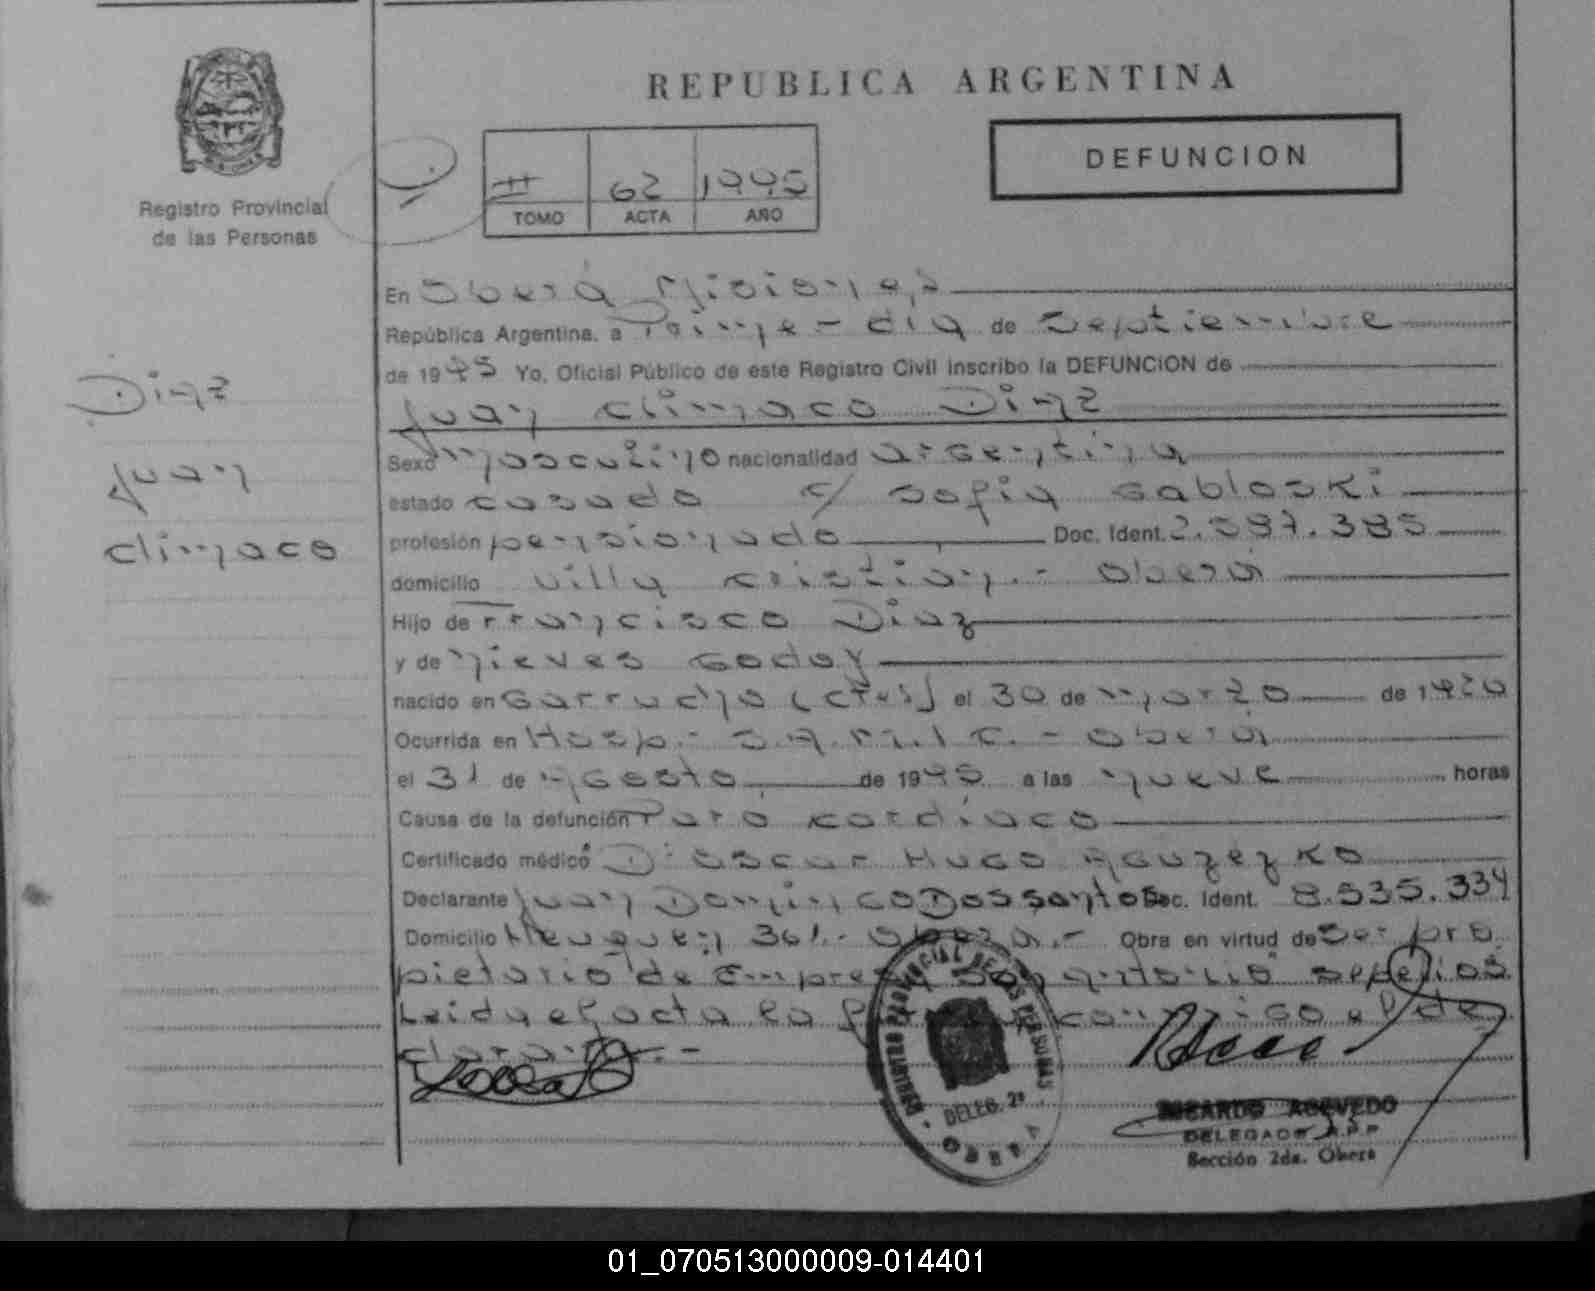 REPUBLICA ARGENTINA
DEFUNCION
Registro Provincial
de las Personas
62 1995
TOMO ACTA AÑO
En Oberá Misiones
República Argentina, a Primer día de Septiembre
de 1995 Yo, Oficial Público de este Registro Civil inscribo la DEFUNCION de
Juan Climaco Diaz
Diaz
Juan
Climaco
Sexo masculino nacionalidad argentina
estado casado c/ Sofia Gabloski
profesión pensionado Doc. Ident. 2.597.385
domicilio Villa Cristian.- Oberá
Hijo de Francisco Diaz
y de Nieves Godoy
nacido en Garruchó (Ctes) el 30 de marzo de 1920
Ocurrida en Hosp.- Oberá
el 31 de Agosto de 1995 a las nueve horas
Causa de la defunción Paro cardíaco
Certificado médico D: Oscar Hugo
Declarante Juan Domingo Dossantos Doc. Ident. 8.535.334
Domicilio Neuquen 361.- Oberá.- Obra en virtud de Ser pro
pietario de Empresa Sepelios
Leida el acta la firma conmigo el de
clarante.-
REGISTRO PROVINCIAL DE LAS PERSONAS
DELEG. 2ª
OBERA
RICARDO ACEVEDO
DELEGADO R.P.P
Sección 2da. Oberá
01_070513000009-014401